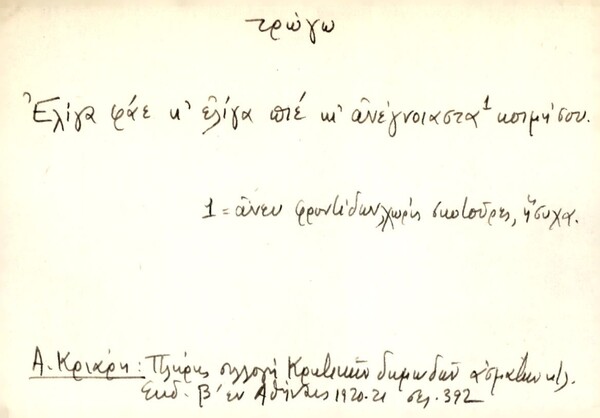 τρώγω
Ἐλίγα φάε κ' ἐλίγα πιέ κι' ἀνέγνοιαστα¹ κοιμήσου.
1 = ἄνευ φροντίδων, χωρίς σκοτοῦρες, ἥσυχα.
Α. Κριάρη: Πλήρης συλλογή Κρητικῶν δημωδῶν ἀσμάτων κτλ.
Ἐκδ. β' ἐν Ἀθήναις 1920-21 σελ. 392